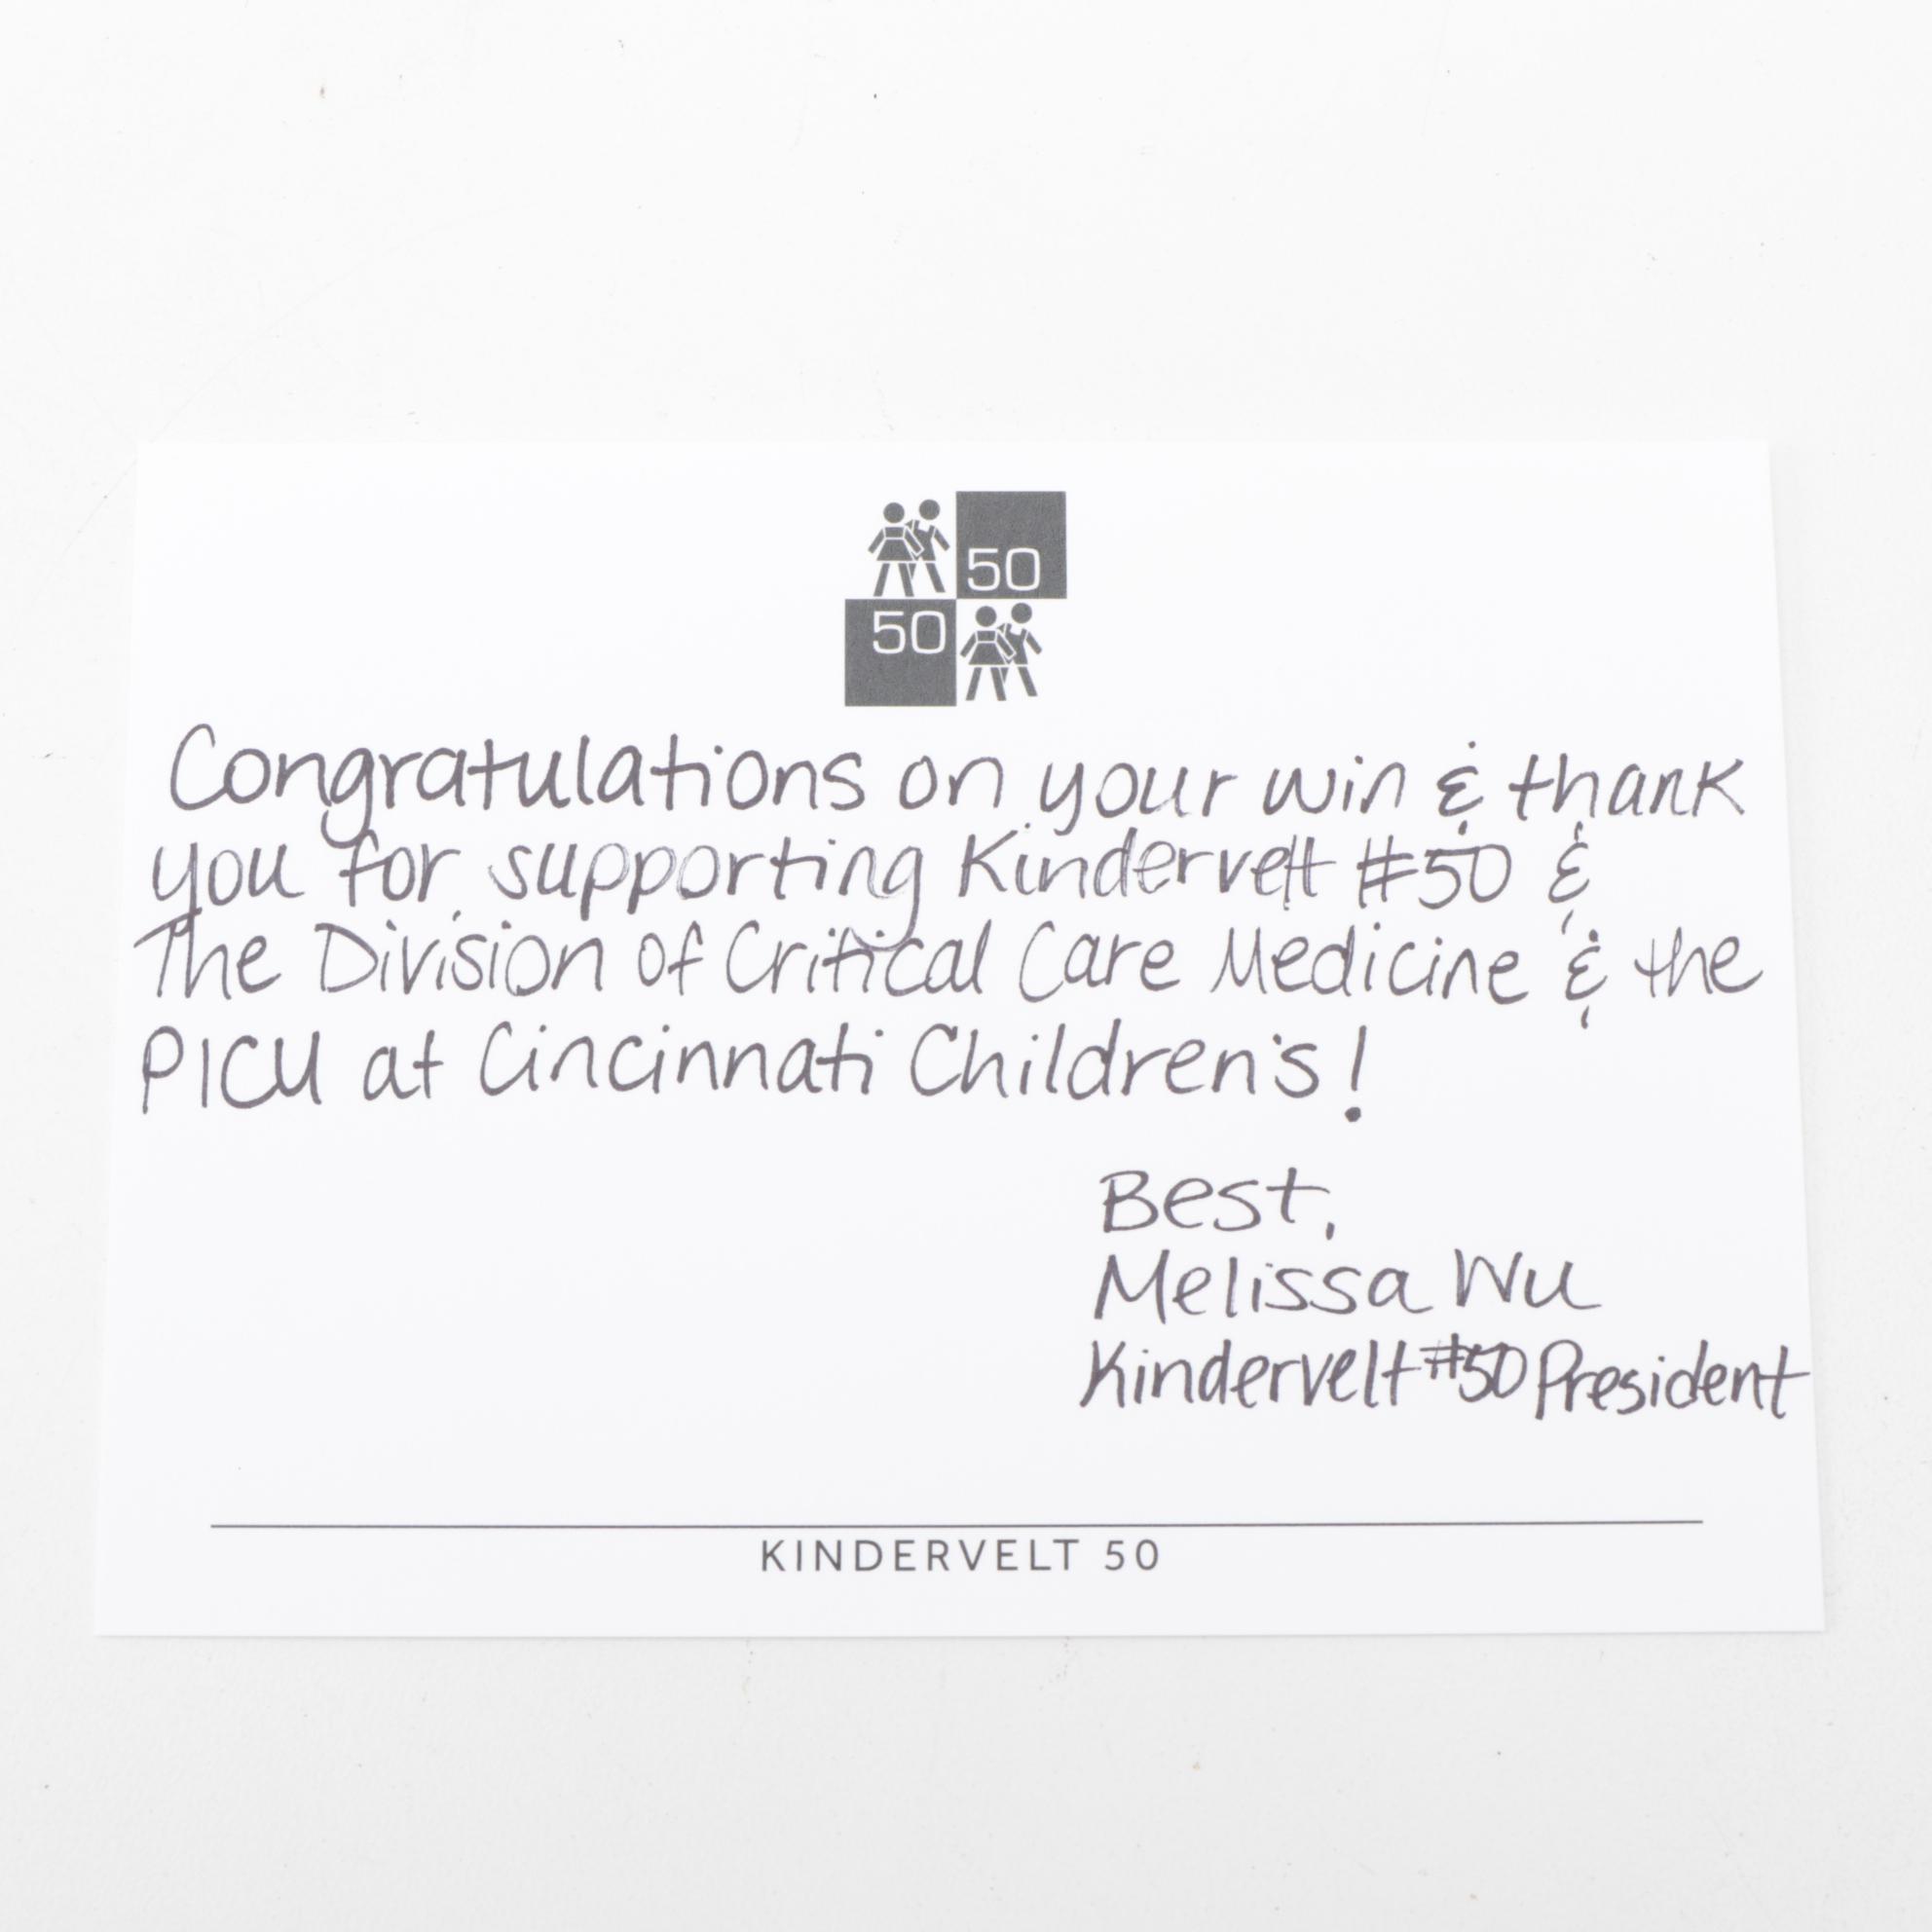 50
50
Congratulations on your win & thank
you for supporting Kindervelt #50 &
The Division of Critical Care Medicine & the
PICU at Cincinnati Children's!
Best,
Melissa Wu
Kindervelt #50 President
KINDERVELT 50